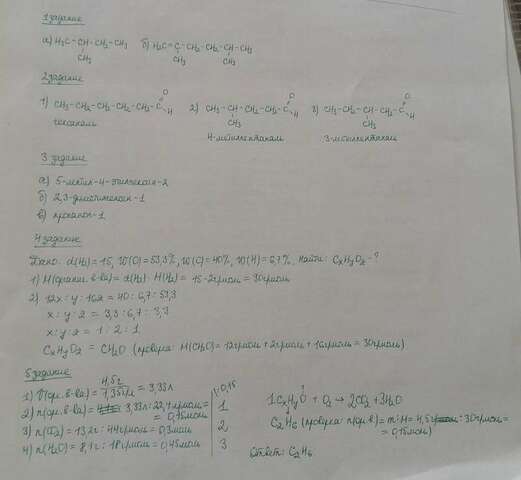 1 задание
а) H₃C-CH-CH₂-CH₃ б) H₂C=C-CH₂-CH₂-CH-CH₃
CH₃ CH₃ CH₃
2 задание
1) CH₃-CH₂-CH₂-CH₂-CH₂-C 2) CH₃-CH-CH₂-CH₂-C 3) CH₃-CH₂-CH-CH₂-C
O H O H O H
CH₃ CH₃
гексаналь 4-метилпентаналь 3-метилпентаналь
3 задание
а) 5-метил-4-этилгексин-2
б) 2,3-диметилгексен-1
в) пропанол-1
4 задание
Дано: d(H₂)=15, W(O)=53,3%, W(C)=40%, W(H)=6,7%. Найти: CxHyOz-?
1) M(органич. в-ва)=d(H₂)·M(H₂)= 15·2г/моль=30г/моль
2) 12x:y:16z=40:6,7:53,3
x:y:z=3,3:6,7:3,3
x:y:z=1:2:1
CxHyOz=CH₂O (проверка: M(CH₂O)=12г/моль+2г/моль+16г/моль=30г/моль)
5 задание
1) V(ор. в-ва)=4,5г/1,35г/л=3,33л |:0,15
2) n(ор. в-ва)= 3,33л:22,4л/моль= 1
=0,15моль
3) n(CO₂)=13,2г:44г/моль=0,3моль 2
4) n(H₂O)=8,1г:18г/моль=0,45моль 3
+ O₂ → 2CO₂+3H₂O
C₂H₆ (проверка: n(ор.в.)=m:M=4,5г:30г/моль=
=0,15моль)
Ответ: C₂H₆